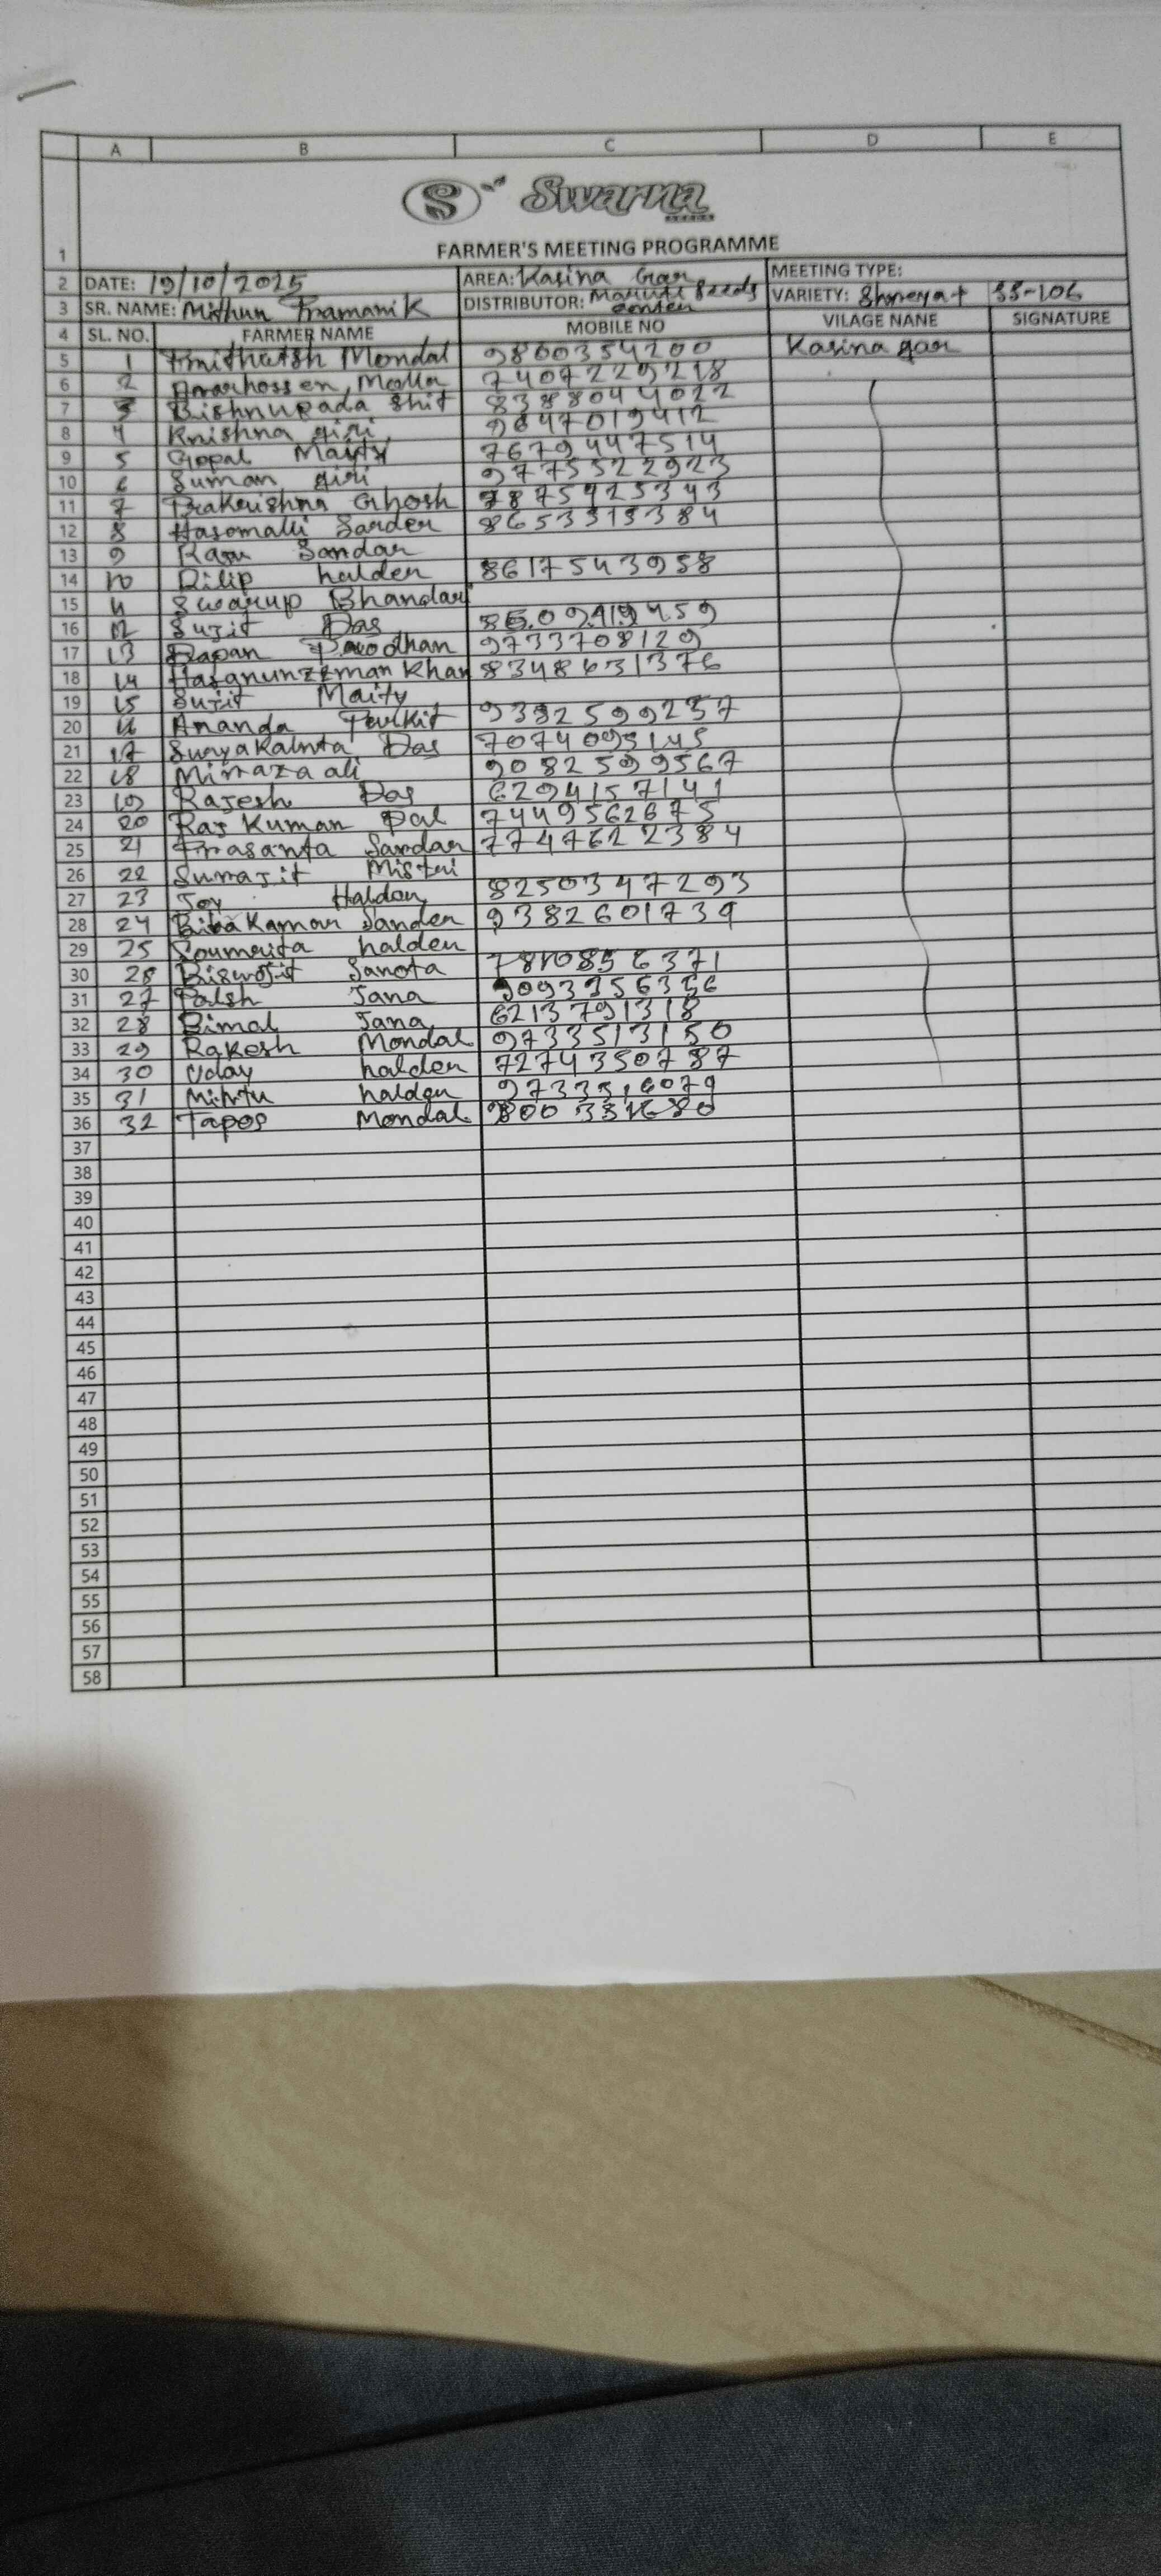 A B C D E
S Swarna
1 FARMER'S MEETING PROGRAMME
2 DATE: 19/10/2025 AREA: Kasina Gar MEETING TYPE:
3 SR. NAME: Mithun Pramanik DISTRIBUTOR: Maruti Seeds center VARIETY: Shreya + SS-106
4 SL. NO. FARMER NAME MOBILE NO VILAGE NANE SIGNATURE
5 1 Mondal 9800354200 Kasina gar
6 2 Molla 7407229218
7 3 Bishnupada Shit 8388044022
8 4 Krishna giri 9647019412
9 5 Gopal Maity 7679447514
10 6 Suman giri 9775522923
11 7 Ghosh
12 8 Hasomalli Sarder 8653319384
13 9 Raju Sandar
14 10 Dilip halder 8617543958
15 11 Swarup Bhandari
16 12 Sujit Das
17 13 9733708129
18 14 Khan 8348631376
19 15 Sujit Maity
20 16 Ananda 9382599237
21 17 Das 7074095145
22 18 Mirraza ali 9082599567
23 19 Rajesh Das 6294157141
24 20 Raj Kumar Pal 7449562675
25 21 Prasanta Sardar 7747622384
26 22 Surajit Mistri
27 23 Joy Haldar 8250347293
28 24 Sander 9382601739
29 25 halder
30 26 Biswojit Sanota
31 27 Palsh Jana
32 28 Bimal Jana 6213791318
33 29 Rakesh Mondal 9733513150
34 30 Uday halder 7274350787
35 31 Mintu halder
36 32 Tapos Mondal
37
38
39
40
41
42
43
44
45
46
47
48
49
50
51
52
53
54
55
56
57
58